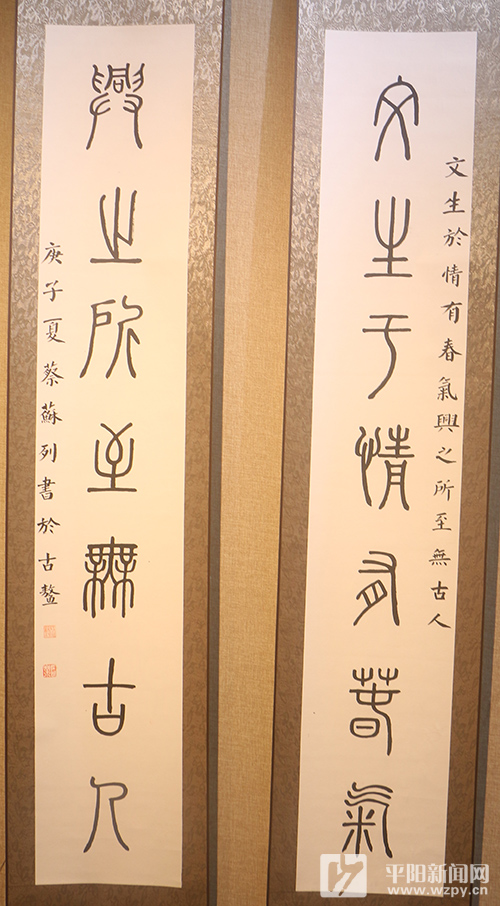 文生于情有春氣
文生於情有春氣興之所至無古人
興之所至無古人
庚子夏蔡蘇列書於古鰲
平阳新闻网
www.wzpy.cn